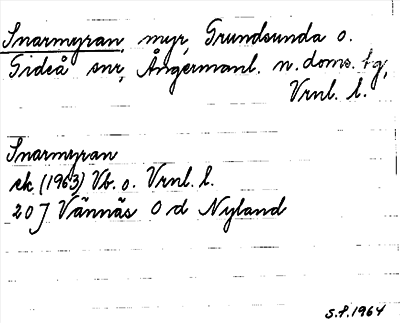 Snarmyran, myr, Grundsunda o.
Gideå snr, Ångermanl. n. doms. tg,
Vrnl. l.
Snarmyran
ek (1963) Vb. o. Vrnl. l.
20 J Vännäs O d Nyland
S.P. 1964